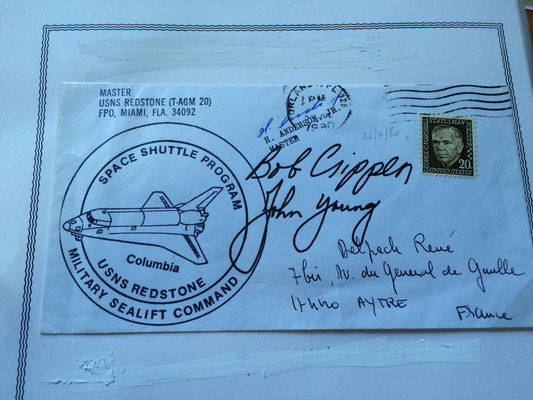 MASTER
USNS REDSTONE (T-AGM 20)
FPO, MIAMI, FLA. 34092
ORLANDO, FL 328
1 PM
1980
H. ANDERSON, JR.
MASTER
26/7/80
STATESMAN
20¢
UNITED STATES
SPACE SHUTTLE PROGRAM
Columbia
USNS REDSTONE
MILITARY SEALIFT COMMAND
Bob Crippen
John Young
Delpech René
7bis, R. du General de Gaulle
17440 AYTRE
France